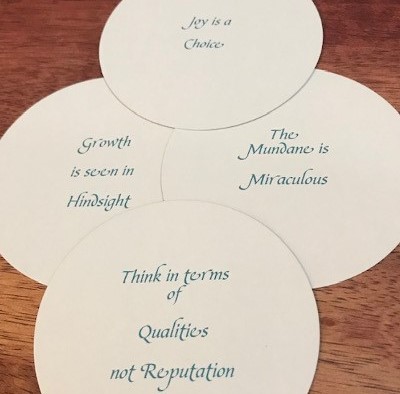 Joy is a
Choice
Growth
is seen in
Hindsight
The
Mundane is
Miraculous
Think in terms
of
Qualities
not Reputation